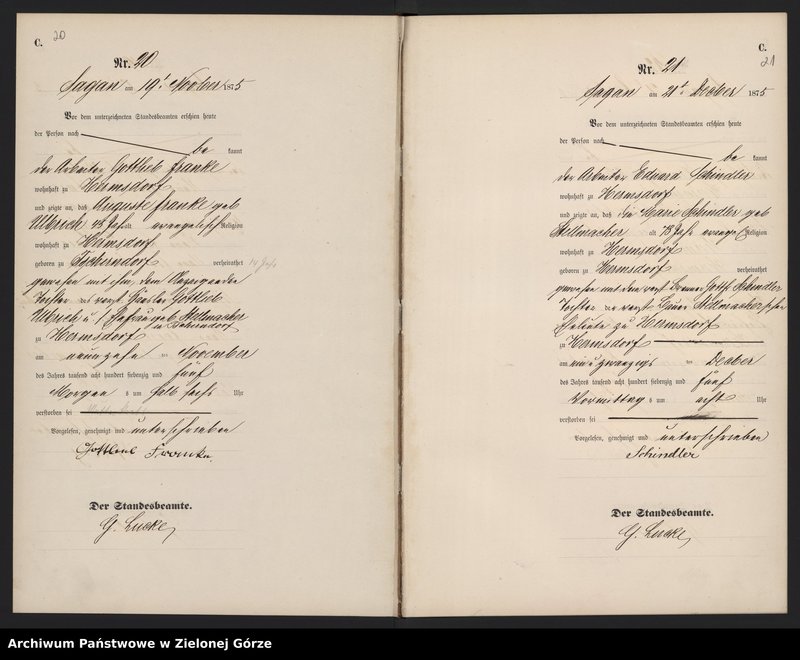 C. 20
Nr. 20
Sagan am 19t November 1875
Vor dem unterzeichneten Standesbeamten erschien heute
der Person nach
be kannt
der Arbeiter Gottlieb Franke
wohnhaft zu Hermsdorf
und zeigte an, daß Auguste Franke geb
Ulbrich 43 Jahr alt evangelisch Religion
wohnhaft zu Hermsdorf
geboren zu Tschirndorf verheirathet 14 Jahr
gewesen mit ihm, dem Anzeigenden
Tochter des verst. Häusler Gottlieb
Ulbrich u. geb Stellmacher
in Tschirndorf
zu Hermsdorf
am neunzehn ten November
des Jahres tausend acht hundert siebenzig und fünf
Morgen s um halb sechs Uhr
verstorben sei
Vorgelesen, genehmigt und unterschrieben
Gottlieb Franke
Der Standesbeamte.
G. Lucke
C.
21
Nr. 21
Sagan am 21t Decber 1875
Vor dem unterzeichneten Standesbeamten erschien heute
der Person nach
be kannt
der Arbeiter Eduard Schindler
wohnhaft zu Hermsdorf
und zeigte an, daß die Marie Schindler geb
Stellmacher alt 78 Jahr evange Religion
wohnhaft zu Hermsdorf
geboren zu Hermsdorf verheirathet
gewesen mit dem verst Gottf Schindler
Tochter der verst Stellmacher
Eheleute zu Hermsdorf
zu Hermsdorf
am ein u zwanzigs ten Decber
des Jahres tausend acht hundert siebenzig und fünf
Vormittag s um acht Uhr
verstorben sei
Vorgelesen, genehmigt und unterschrieben
Schindler
Der Standesbeamte.
G. Lucke
Archiwum Państwowe w Zielonej Górze